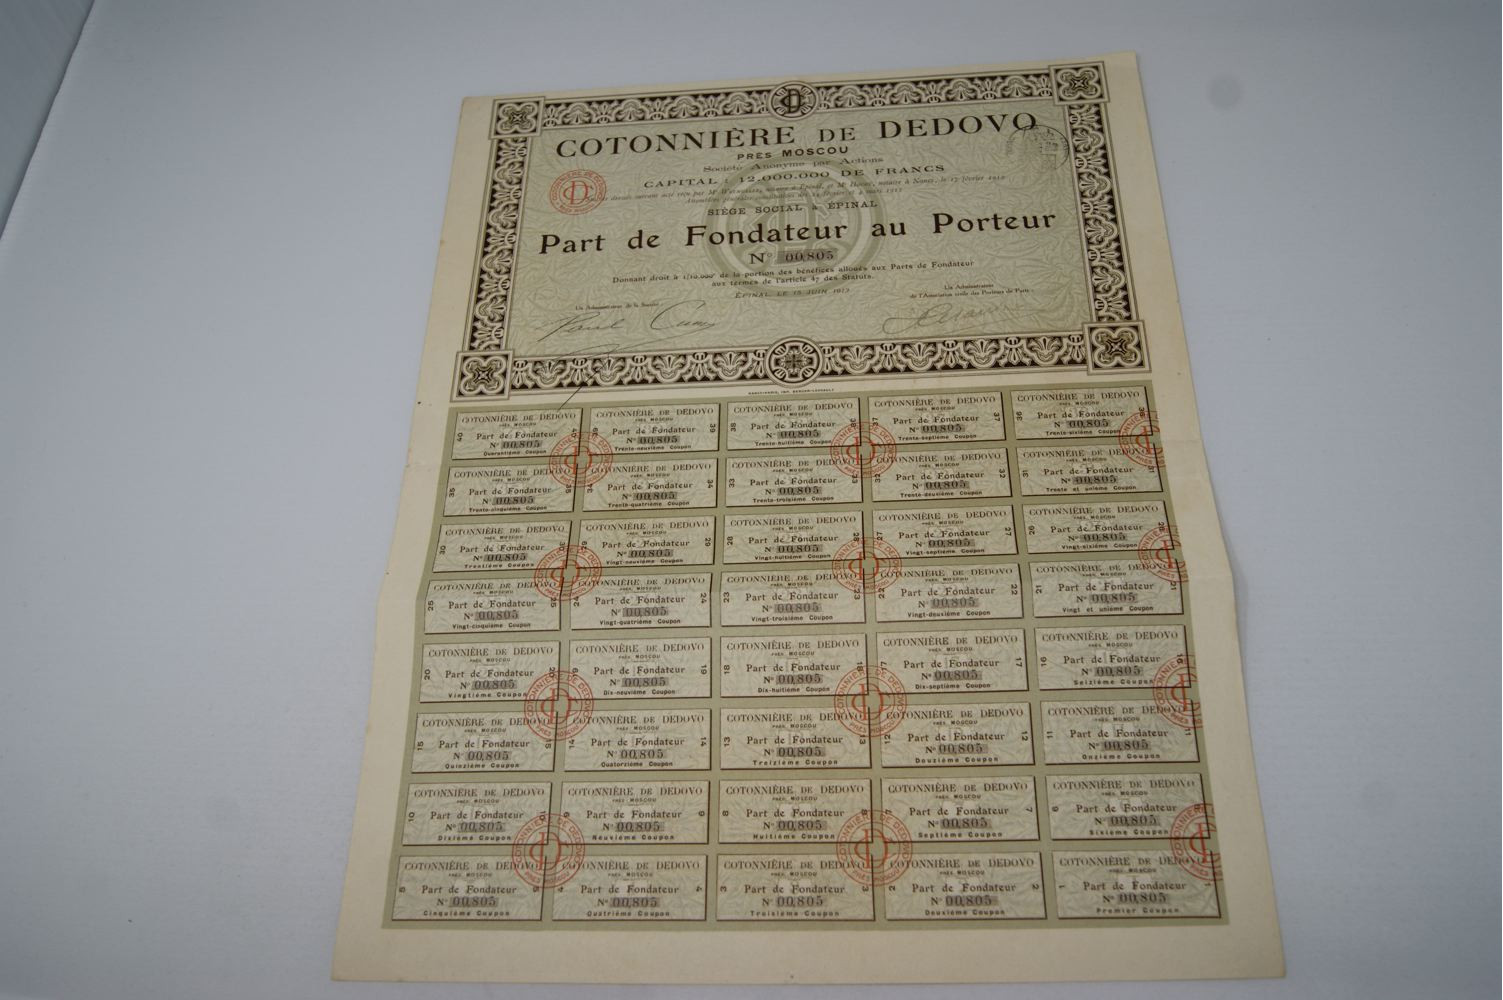 COTONNIÈRE DE DEDOVO
PRÈS MOSCOU
Société Anonyme par Actions
CAPITAL : 12.000.000 DE FRANCS
SIÈGE SOCIAL à ÉPINAL
Part de Fondateur au Porteur
N° 00,805
Donnant droit à 1/10.000e de la portion des bénéfices alloués aux Parts de Fondateur
aux termes de l'article 47 des Statuts.
ÉPINAL, LE 15 JUIN 1912
Un Administrateur de la Société :
Un Administrateur
de l'Association civile des Porteurs de Parts :
NANCY-PARIS, IMP. BERGER-LEVRAULT
40 COTONNIÈRE DE DEDOVO
PRÈS MOSCOU
Part de Fondateur
N° 00,805
Quarantième Coupon
39 COTONNIÈRE DE DEDOVO
PRÈS MOSCOU
Part de Fondateur
N° 00,805
Trente-neuvième Coupon
38 COTONNIÈRE DE DEDOVO
PRÈS MOSCOU
Part de Fondateur
N° 00,805
Trente-huitième Coupon
37 COTONNIÈRE DE DEDOVO
PRÈS MOSCOU
Part de Fondateur
N° 00,805
Trente-septième Coupon
36 COTONNIÈRE DE DEDOVO
PRÈS MOSCOU
Part de Fondateur
N° 00,805
Trente-sixième Coupon
35 COTONNIÈRE DE DEDOVO
PRÈS MOSCOU
Part de Fondateur
N° 00,805
Trente-cinquième Coupon
34 COTONNIÈRE DE DEDOVO
PRÈS MOSCOU
Part de Fondateur
N° 00,805
Trente-quatrième Coupon
33 COTONNIÈRE DE DEDOVO
PRÈS MOSCOU
Part de Fondateur
N° 00,805
Trente-troisième Coupon
32 COTONNIÈRE DE DEDOVO
PRÈS MOSCOU
Part de Fondateur
N° 00,805
Trente-deuxième Coupon
31 COTONNIÈRE DE DEDOVO
PRÈS MOSCOU
Part de Fondateur
N° 00,805
Trente et unième Coupon
30 COTONNIÈRE DE DEDOVO
PRÈS MOSCOU
Part de Fondateur
N° 00,805
Trentième Coupon
29 COTONNIÈRE DE DEDOVO
PRÈS MOSCOU
Part de Fondateur
N° 00,805
Vingt-neuvième Coupon
28 COTONNIÈRE DE DEDOVO
PRÈS MOSCOU
Part de Fondateur
N° 00,805
Vingt-huitième Coupon
27 COTONNIÈRE DE DEDOVO
PRÈS MOSCOU
Part de Fondateur
N° 00,805
Vingt-septième Coupon
26 COTONNIÈRE DE DEDOVO
PRÈS MOSCOU
Part de Fondateur
N° 00,805
Vingt-sixième Coupon
25 COTONNIÈRE DE DEDOVO
PRÈS MOSCOU
Part de Fondateur
N° 00,805
Vingt-cinquième Coupon
24 COTONNIÈRE DE DEDOVO
PRÈS MOSCOU
Part de Fondateur
N° 00,805
Vingt-quatrième Coupon
23 COTONNIÈRE DE DEDOVO
PRÈS MOSCOU
Part de Fondateur
N° 00,805
Vingt-troisième Coupon
22 COTONNIÈRE DE DEDOVO
PRÈS MOSCOU
Part de Fondateur
N° 00,805
Vingt-deuxième Coupon
21 COTONNIÈRE DE DEDOVO
PRÈS MOSCOU
Part de Fondateur
N° 00,805
Vingt et unième Coupon
20 COTONNIÈRE DE DEDOVO
PRÈS MOSCOU
Part de Fondateur
N° 00,805
Vingtième Coupon
19 COTONNIÈRE DE DEDOVO
PRÈS MOSCOU
Part de Fondateur
N° 00,805
Dix-neuvième Coupon
18 COTONNIÈRE DE DEDOVO
PRÈS MOSCOU
Part de Fondateur
N° 00,805
Dix-huitième Coupon
17 COTONNIÈRE DE DEDOVO
PRÈS MOSCOU
Part de Fondateur
N° 00,805
Dix-septième Coupon
16 COTONNIÈRE DE DEDOVO
PRÈS MOSCOU
Part de Fondateur
N° 00,805
Seizième Coupon
15 COTONNIÈRE DE DEDOVO
PRÈS MOSCOU
Part de Fondateur
N° 00,805
Quinzième Coupon
14 COTONNIÈRE DE DEDOVO
PRÈS MOSCOU
Part de Fondateur
N° 00,805
Quatorzième Coupon
13 COTONNIÈRE DE DEDOVO
PRÈS MOSCOU
Part de Fondateur
N° 00,805
Treizième Coupon
12 COTONNIÈRE DE DEDOVO
PRÈS MOSCOU
Part de Fondateur
N° 00,805
Douzième Coupon
11 COTONNIÈRE DE DEDOVO
PRÈS MOSCOU
Part de Fondateur
N° 00,805
Onzième Coupon
10 COTONNIÈRE DE DEDOVO
PRÈS MOSCOU
Part de Fondateur
N° 00,805
Dixième Coupon
9 COTONNIÈRE DE DEDOVO
PRÈS MOSCOU
Part de Fondateur
N° 00,805
Neuvième Coupon
8 COTONNIÈRE DE DEDOVO
PRÈS MOSCOU
Part de Fondateur
N° 00,805
Huitième Coupon
7 COTONNIÈRE DE DEDOVO
PRÈS MOSCOU
Part de Fondateur
N° 00,805
Septième Coupon
6 COTONNIÈRE DE DEDOVO
PRÈS MOSCOU
Part de Fondateur
N° 00,805
Sixième Coupon
5 COTONNIÈRE DE DEDOVO
PRÈS MOSCOU
Part de Fondateur
N° 00,805
Cinquième Coupon
4 COTONNIÈRE DE DEDOVO
PRÈS MOSCOU
Part de Fondateur
N° 00,805
Quatrième Coupon
3 COTONNIÈRE DE DEDOVO
PRÈS MOSCOU
Part de Fondateur
N° 00,805
Troisième Coupon
2 COTONNIÈRE DE DEDOVO
PRÈS MOSCOU
Part de Fondateur
N° 00,805
Deuxième Coupon
1 COTONNIÈRE DE DEDOVO
PRÈS MOSCOU
Part de Fondateur
N° 00,805
Premier Coupon